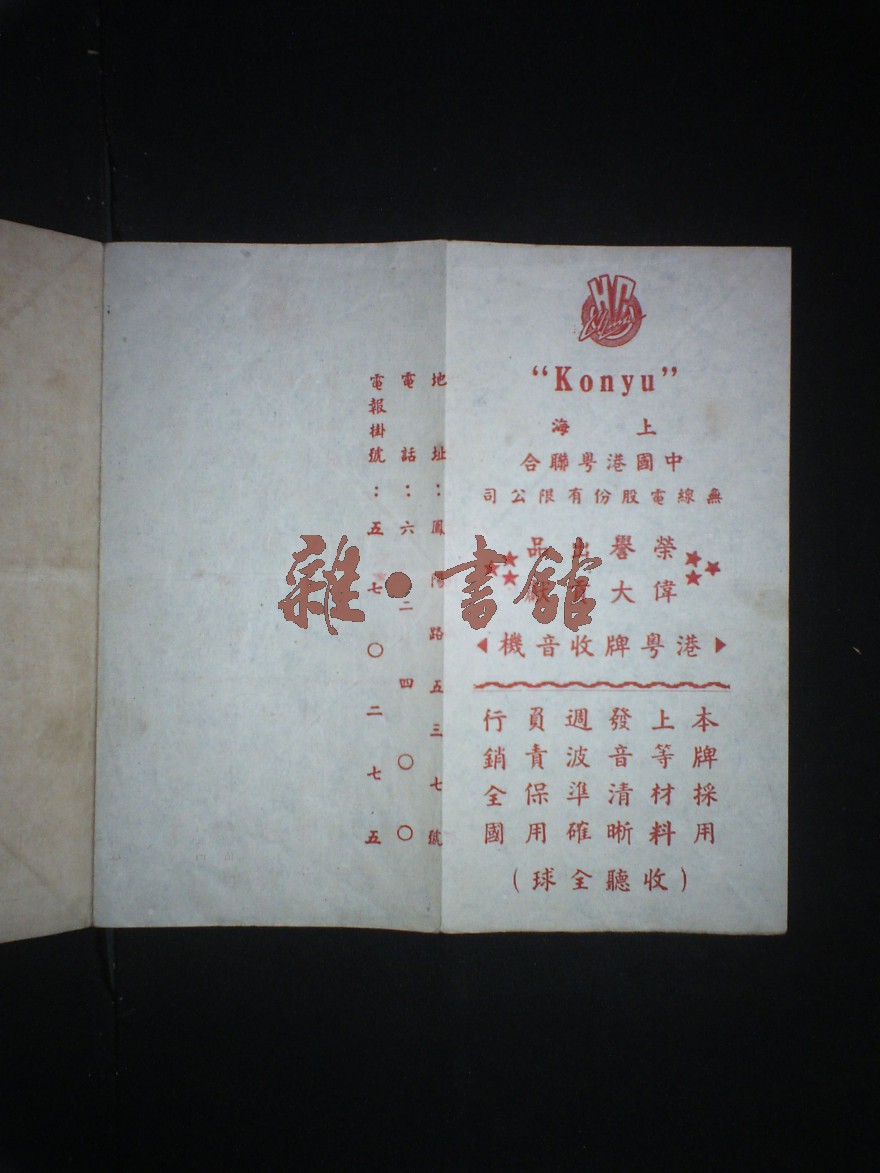 "Konyu"
上海
中國港粵聯合
無線電股份有限公司
榮譽出品
偉大貢獻
港粵牌收音機
本牌採用
上等材料
發音清晰
週波準確
員責保用
行銷全國
(收聽全球)
地址：鳳陽路五三七號
電話：六二四〇〇
電報掛號：五七〇二七五
雜·書館